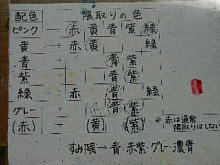 配色　隈取りの色
ピンク → 赤 黄 青 紫 緑
黄 → 赤 緑
青 → 青 紫
紫 → 青 紫
緑 → 赤 黄 緑
グレー → 青 紫
(赤) → (黄) (紫) ※赤は通常隈取りはしない
すみ隈→青 赤紫 グレー 濃青